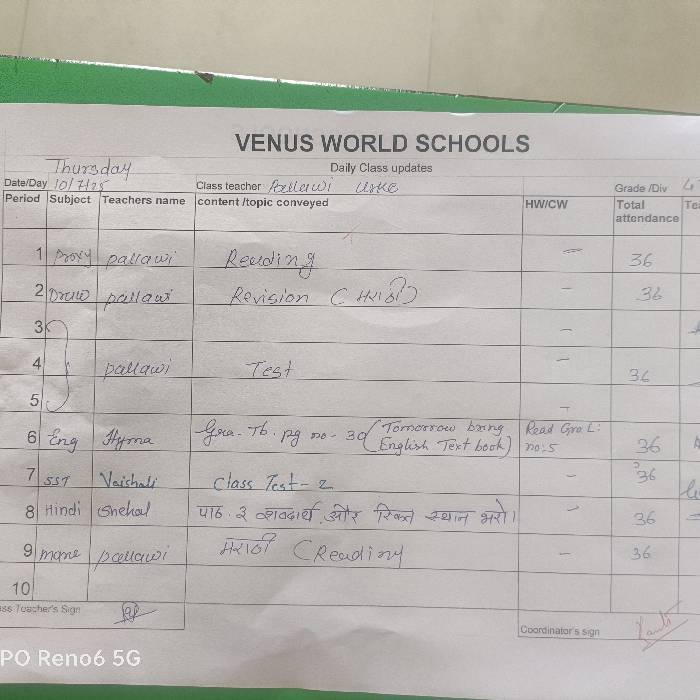 VENUS WORLD SCHOOLS
Daily Class updates
Thursday
Date/Day 10/7/25 Class teacher Pallawi Grade /Div
Period Subject Teachers name content /topic conveyed HW/CW Total attendance
1 Proxy pallawi Reading — 36
2 Draw pallawi Revision (मराठी) — 36
3 —
4 pallawi Test — 36
5 —
6 Eng Hyma Gra. Tb. pg no - 30 (Tomorrow bring English Text book) Read Gra L: no:5 36
7 SST Vaishali Class Test - 2 - 36
8 Hindi Snehal पाठ. २ शब्दार्थ और रिक्त स्थान भरो। - 36
9 pallawi मराठी (Reading — 36
10
ss Teacher's Sign
Coordinator's sign
PO Reno6 5G